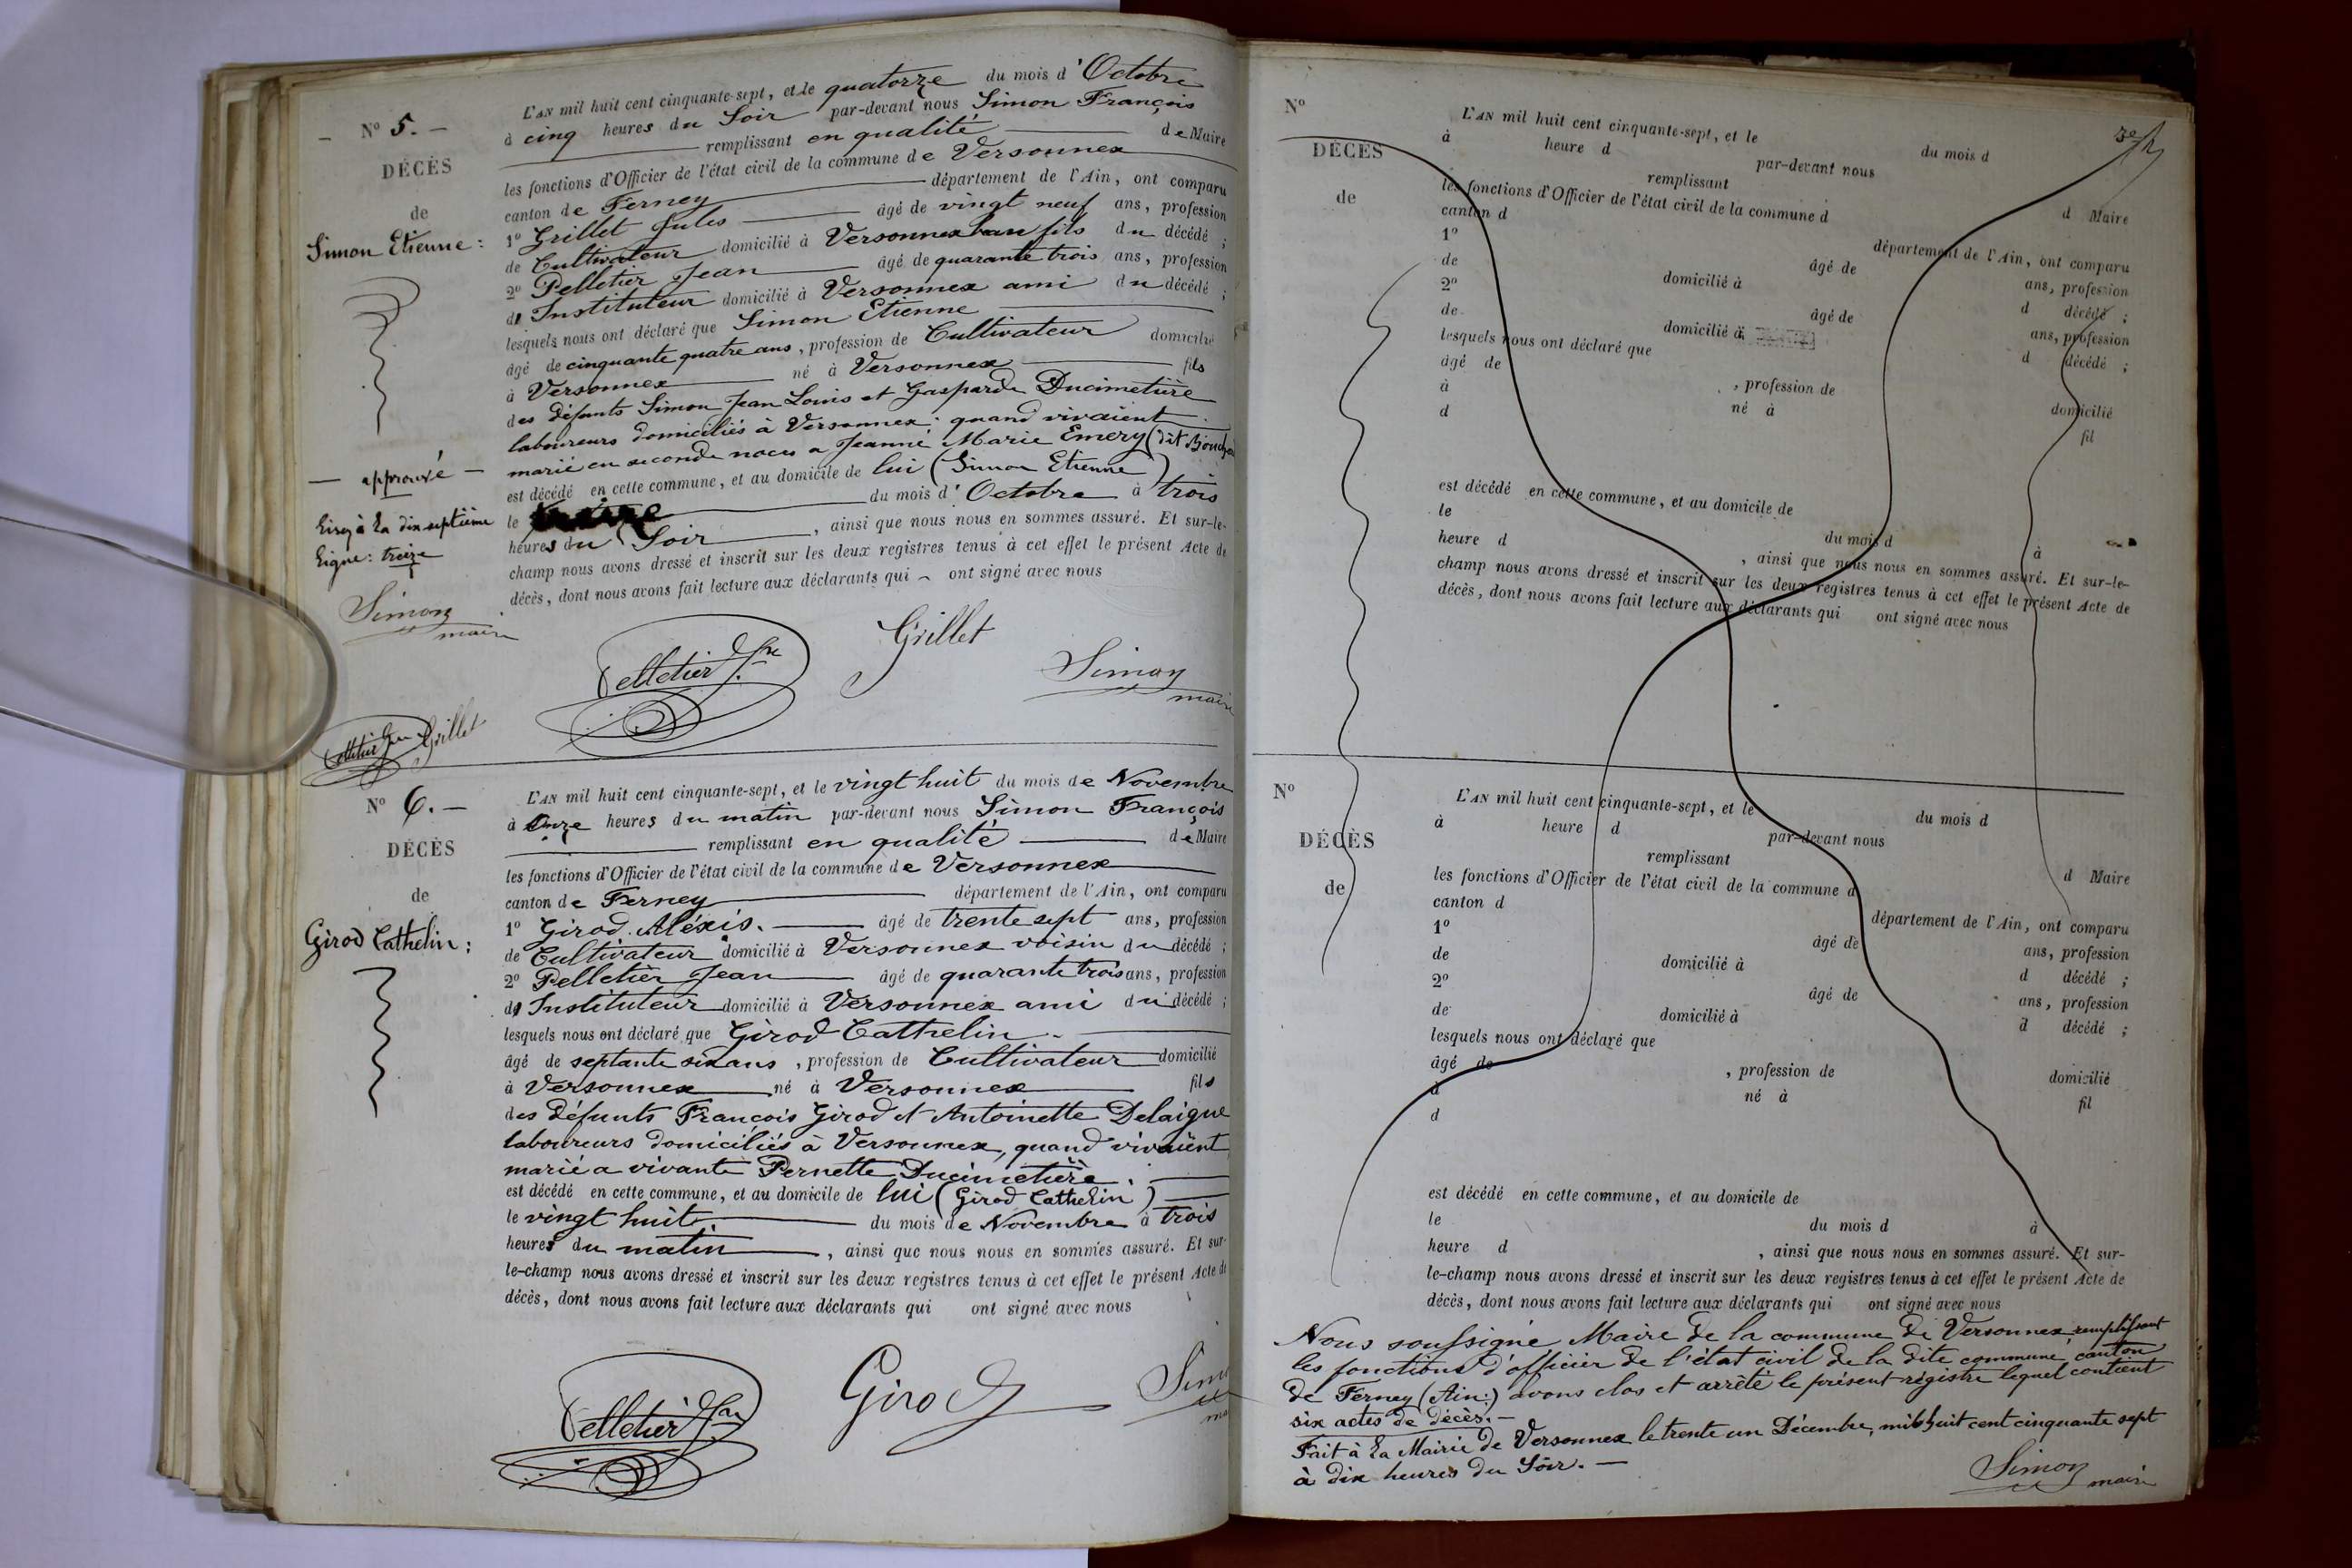 — Nº 5. —
DÉCÈS
de
Simon Etienne :
— approuvé —
Lisez à la dix septième
ligne : treize
Simon
maire
Pelletier Jean Grillet
L'AN mil huit cent cinquante-sept, et le quatorze du mois d'Octobre
à cinq heures du Soir par-devant nous Simon François
remplissant en qualité de Maire
les fonctions d'Officier de l'état civil de la commune de Versonnex
canton de Ferney département de l'Ain, ont comparu
1º Grillet Jules âgé de vingt neuf ans, profession
de Cultivateur domicilié à Versonnex beau fils du décédé ;
2º Pelletier Jean âgé de quarante trois ans, profession
d' Instituteur domicilié à Versonnex ami du décédé ;
lesquels nous ont déclaré que Simon Etienne
âgé de cinquante quatre ans, profession de Cultivateur domicilié
à Versonnex né à Versonnex fils
des défunts Simon Jean Louis et Gasparde Ducimetière
laboureurs domiciliés à Versonnex : quand vivaient
marié en seconde noces a Jeanne Marie Emery (dit
est décédé en cette commune, et au domicile de lui (Simon Etienne)
le du mois d'Octobre à trois
heures du Soir, ainsi que nous nous en sommes assuré. Et sur-le-
champ nous avons dressé et inscrit sur les deux registres tenus à cet effet le présent Acte de
décès, dont nous avons fait lecture aux déclarants qui ont signé avec nous
Pelletier Jean Grillet Simon
maire
Nº 6. —
DÉCÈS
de
Girod Cathelin :
L'AN mil huit cent cinquante-sept, et le vingt huit du mois de Novembre
à Onze heures du matin par-devant nous Simon François
remplissant en qualité de Maire
les fonctions d'Officier de l'état civil de la commune de Versonnex
canton de Ferney département de l'Ain, ont comparu
1º Girod Aléxis. âgé de trente sept ans, profession
de Cultivateur domicilié à Versonnex voisin du décédé ;
2º Pelletier Jean âgé de quarante trois ans, profession
d' Instituteur domicilié à Versonnex ami du décédé ;
lesquels nous ont déclaré que Girod Cathelin
âgé de septante six ans, profession de Cultivateur domicilié
à Versonnex né à Versonnex fils
des défunts François Girod et Antoinette Delaigue
laboureurs domiciliés à Versonnex, quand vivaient
marié a vivante Pernette Ducimetière.
est décédé en cette commune, et au domicile de lui (Girod Cathelin)
le vingt huit. du mois de Novembre à trois
heures du matin, ainsi que nous nous en sommes assuré. Et sur-
le-champ nous avons dressé et inscrit sur les deux registres tenus à cet effet le présent Acte de
décès, dont nous avons fait lecture aux déclarants qui ont signé avec nous
Pelletier Jean Girod
Nº
DÉCÈS
de
L'AN mil huit cent cinquante-sept, et le du mois d
à heure d par-devant nous
remplissant d Maire
les fonctions d'Officier de l'état civil de la commune d
canton d département de l'Ain, ont comparu
1º âgé de ans, profession
de domicilié à d décédé ;
2º âgé de ans, profession
de domicilié à d décédé ;
lesquels nous ont déclaré que
âgé de , profession de domicilié
à né à fil
d
est décédé en cette commune, et au domicile de
le du mois d à
heure d , ainsi que nous nous en sommes assuré. Et sur-le-
champ nous avons dressé et inscrit sur les deux registres tenus à cet effet le présent Acte de
décès, dont nous avons fait lecture aux déclarants qui ont signé avec nous
Nº
DÉCÈS
de
L'AN mil huit cent cinquante-sept, et le du mois d
à heure d par-devant nous
remplissant d Maire
les fonctions d'Officier de l'état civil de la commune d
canton d département de l'Ain, ont comparu
1º âgé de ans, profession
de domicilié à d décédé ;
2º âgé de ans, profession
de domicilié à d décédé ;
lesquels nous ont déclaré que
âgé de , profession de domicilié
à né à fil
d
est décédé en cette commune, et au domicile de
le du mois d à
heure d , ainsi que nous nous en sommes assuré. Et sur-
le-champ nous avons dressé et inscrit sur les deux registres tenus à cet effet le présent Acte de
décès, dont nous avons fait lecture aux déclarants qui ont signé avec nous
Nous soussigné, Maire de la commune de Versonnex, remplissant
les fonctions d'officier de l'état civil de la dite commune, canton
de Ferney (Ain:) avons clos et arrêté le présent régistre lequel contient
six actes de décès. —
Fait à la Mairie de Versonnex le trente un Décembre, mil huit cent cinquante sept
à dix heures du Soir. —
Simon
maire